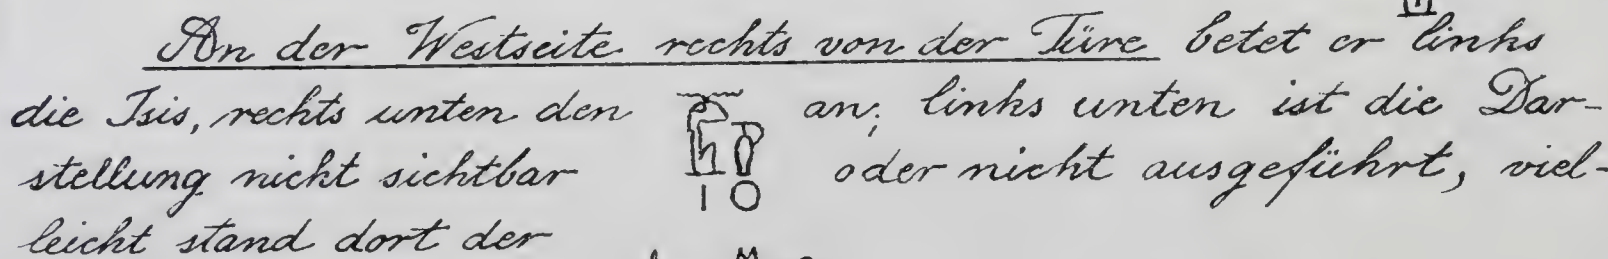 An der Westseite rechts von der Türe betet er links
die Isis, rechts unten den an; links unten ist die Dar-
stellung nicht sichtbar oder nicht ausgeführt, viel-
leicht stand dort der